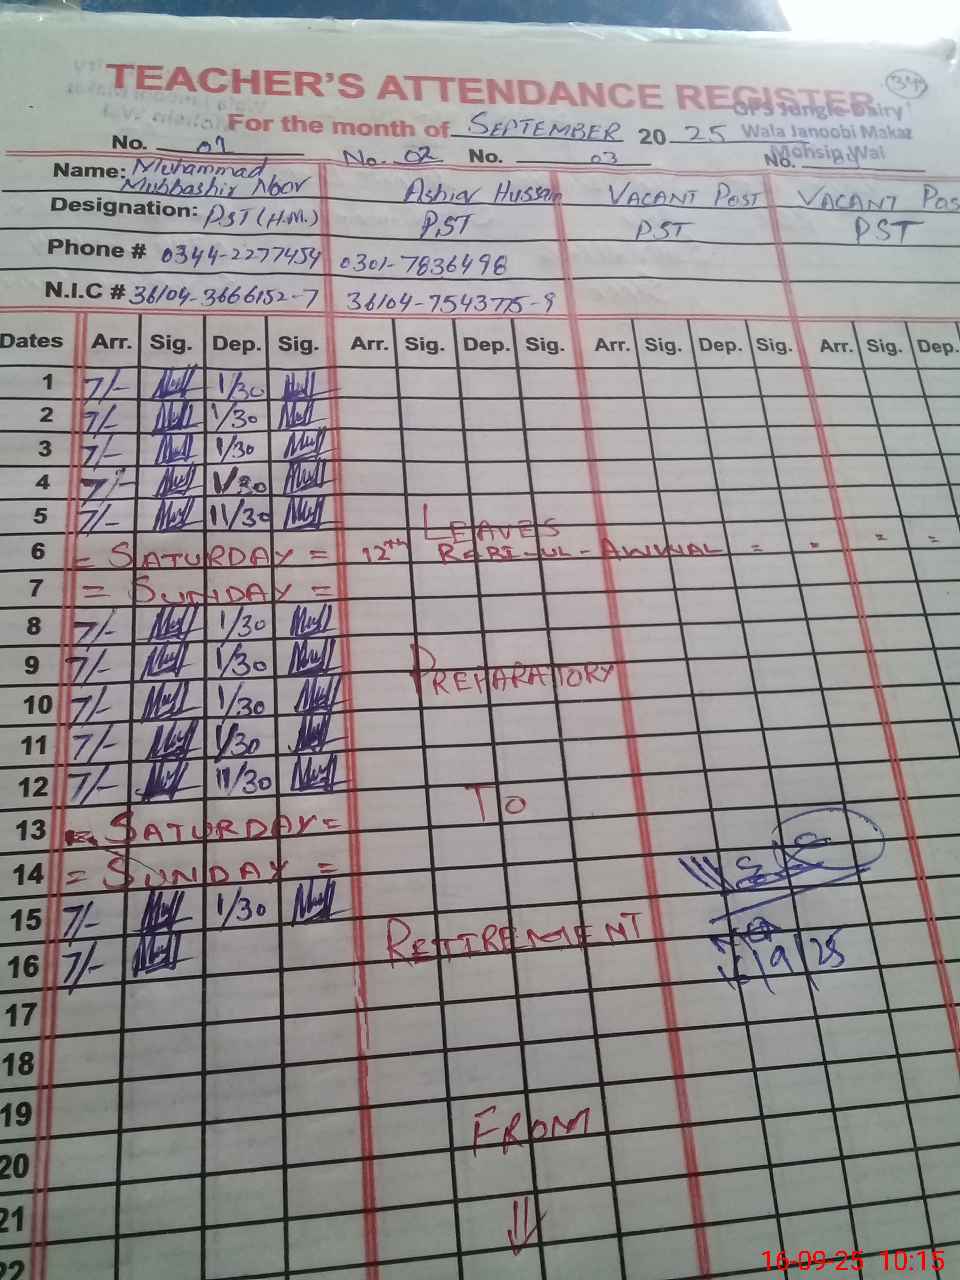 TEACHER'S ATTENDANCE REGISTER
GPS Jungle Dairy
For the month of SEPTEMBER 2025 Wala Janoobi Makaz
Mohsin Wal
No. 01 No. 02 No. 03 No.
Name: Muhammad Mubbashir Noor Ashiq Hussain VACANT POST VACANT POS
Designation: PST (H.M.) P.ST PST PST
Phone # 0344-2277454 0301-7836498
N.I.C # 36104-3666152-7 36104-7543775-9
Dates Arr. Sig. Dep. Sig. Arr. Sig. Dep. Sig. Arr. Sig. Dep. Sig. Arr. Sig. Dep.
1 7/- 1/30
2 7/- 1/30
3 7/- 1/30
4 7/- 1/30
5 7/- 11/30 LEAVES
6 = SATURDAY = 12th RABI-UL-AWWAL = = = =
7 = SUNDAY =
8 7/- 1/30
9 7/- 1/30 PREPARATORY
10 7/- 1/30
11 7/- 1/30
12 7/- 11/30 TO
13 = SATURDAY =
14 = SUNDAY =
15 7/- 1/30 RETIREMENT
16 7/- 16/9/25
17
18
19 FROM
20
21
22
16-09-25 10:15